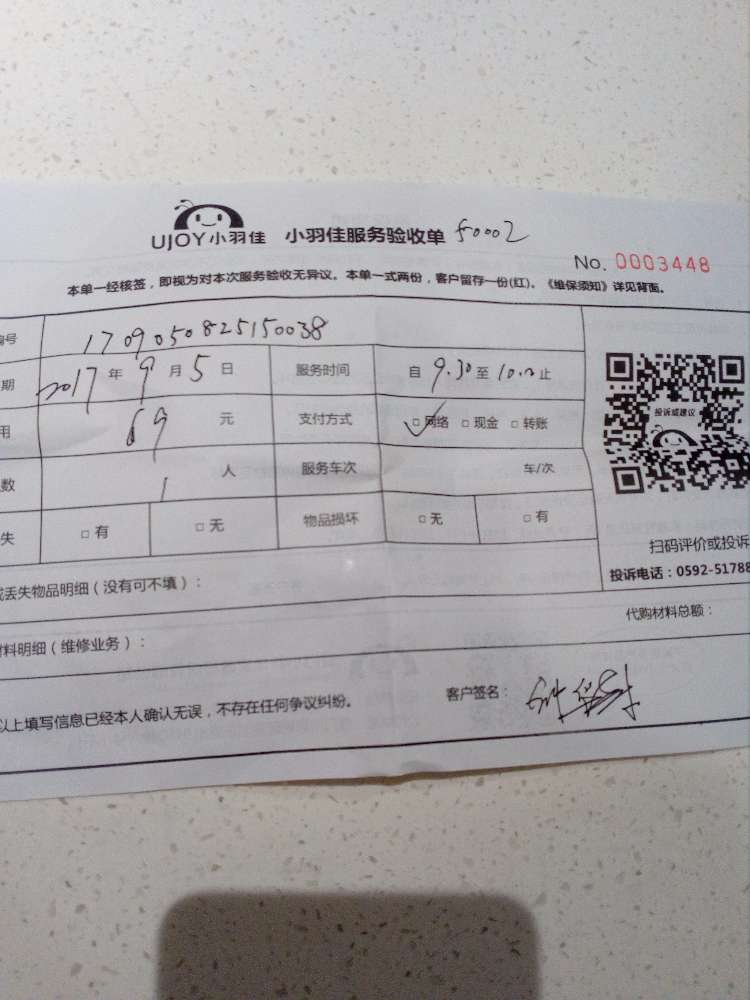 UJOY小羽佳 小羽佳服务验收单 50002
No. 0003448
本单一经核签，即视为对本次服务验收无异议。本单一式两份，客户留存一份(红)。《维保须知》详见背面。
编号 1709050825150038
期 2017年9月5日 服务时间 自9.30至 止
用 69 元 支付方式 ☑网络 □现金 □转账
数 1 人 服务车次 车/次
失 □有 □无 物品损坏 □无 □有
投诉或建议
扫码评价或投诉
投诉电话：0592-51788
或丢失物品明细（没有可不填）：
代购材料总额：
材料明细（维修业务）：
以上填写信息已经本人确认无误，不存在任何争议纠纷。 客户签名：